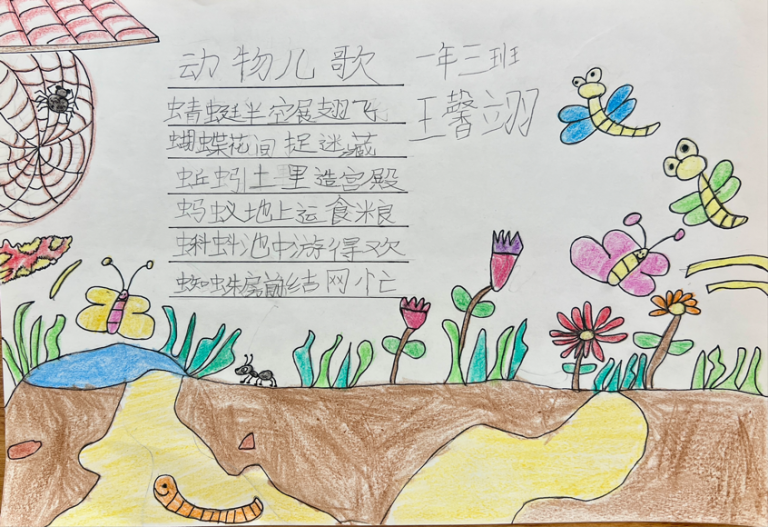 动物儿歌
一年三班
王馨翊
蜻蜓半空展翅飞
蝴蝶花间捉迷藏
蚯蚓土里造宫殿
蚂蚁地上运食粮
蝌蚪池中游得欢
蜘蛛房前结网忙